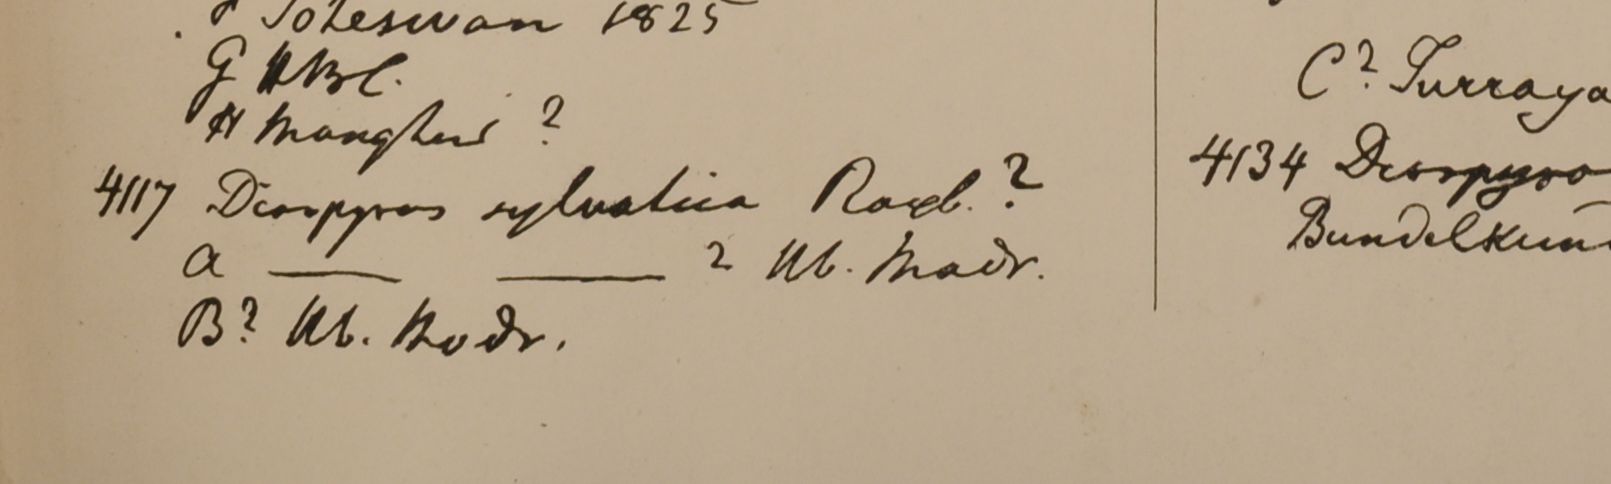 Toteswan 1825
G HBC.
H Manghur ?
4117 Diospyros sylvatica Roxb. ?
a ——— ——— ? Hb. Madr.
B? Hb. Madr.
C? Turraya
4134 Diospyro
Bundelkun